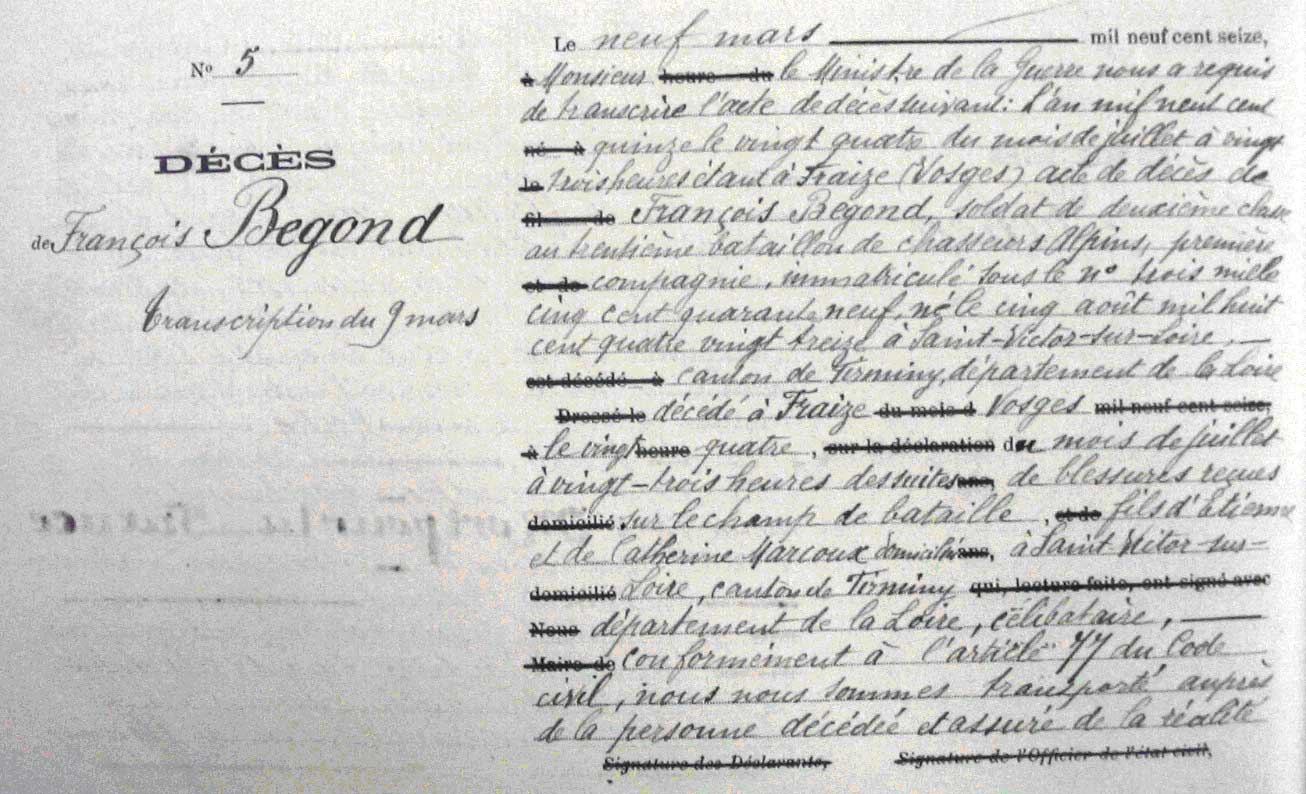 N° 5
DÉCÈS
de François Begond
Transcription du 9 mars
Le neuf mars mil neuf cent seize,
à Monsieur heure du le Ministre de la Guerre nous a requis
de transcrire l'acte de décès suivant : L'an mil neuf cent
né à quinze le vingt quatre du mois de juillet à vingt
le trois heures étant à Fraize (Vosges) acte de décès de
fil de François Begond, soldat de deuxième classe
au trentième bataillon de chasseurs Alpins, première
et de compagnie, immatriculé sous le n° trois mille
cinq cent quarante neuf, né le cinq août mil huit
cent quatre vingt treize à Saint-Victor-sur-Loire, —
est décédé à canton de Firminy, département de la Loire
Dressé le décédé à Fraize du mois d Vosges mil neuf cent seize,
à le vingt heure quatre, sur la déclaration du mois de juillet
à vingt-trois heures des suites ans, de blessures reçues
domicilié sur le champ de bataille, et de fils d'Etienne
et de Catherine Marcoux domiciliés ans, à Saint Victor-sur-
domicilié Loire, canton de Firminy qui, lecture faite, ont signé avec
Nous département de la Loire, célibataire, —
Maire de conformément à l'article 77 du Code
civil, nous nous sommes transporté auprès
de la personne décédée et assuré de la réalité
Signature des Déclarants, Signature de l'Officier de l'état civil,